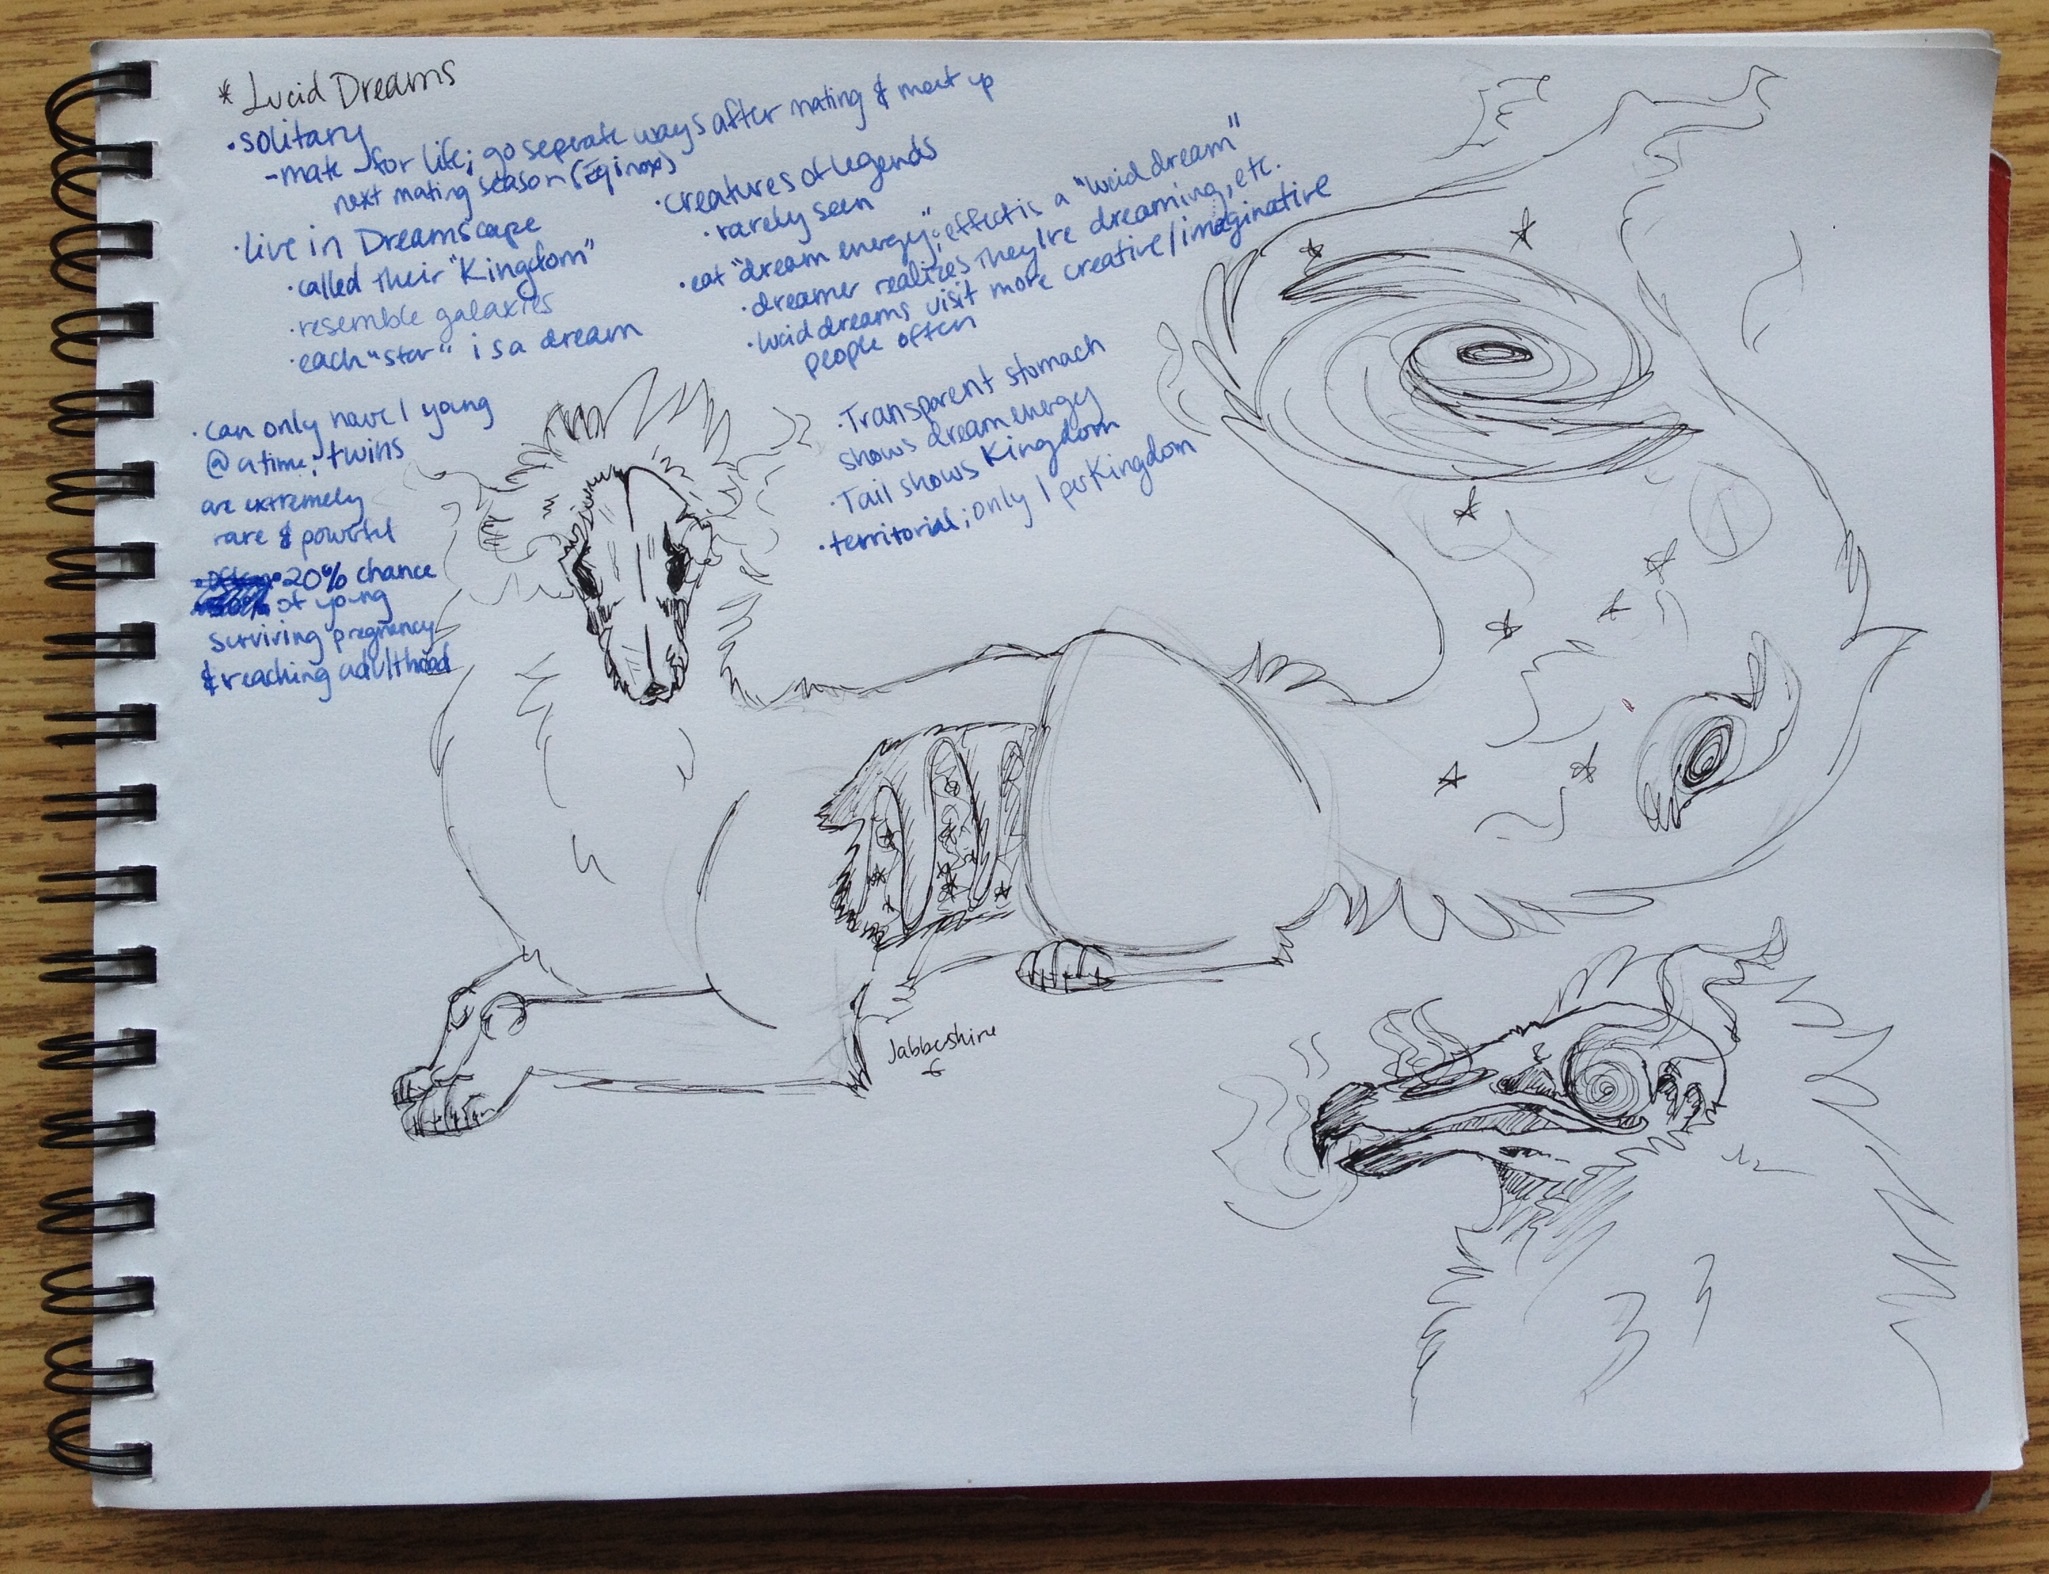 * Lucid Dreams
• solitary
- mate for life; go seperate ways after mating & meet up
next mating season (Eqinox)
• live in Dreamscape
• called their "Kingdom"
• resemble galaxies
• each "star" is a dream
• creatures of legends
• rarely seen
• eat "dream energy"; effect is a "lucid dream"
• dreamer realizes they're dreaming, etc.
• lucid dreams visit more creative/imaginative
people often
• Transparent stomach
shows dream energy
• Tail shows Kingdom
• territorial; only 1 per Kingdom
• can only have 1 young
@ a time; twins
are extremely
rare & powerful
• 20% chance
of young
surviving pregnancy
& reaching adulthood
Jabbershire